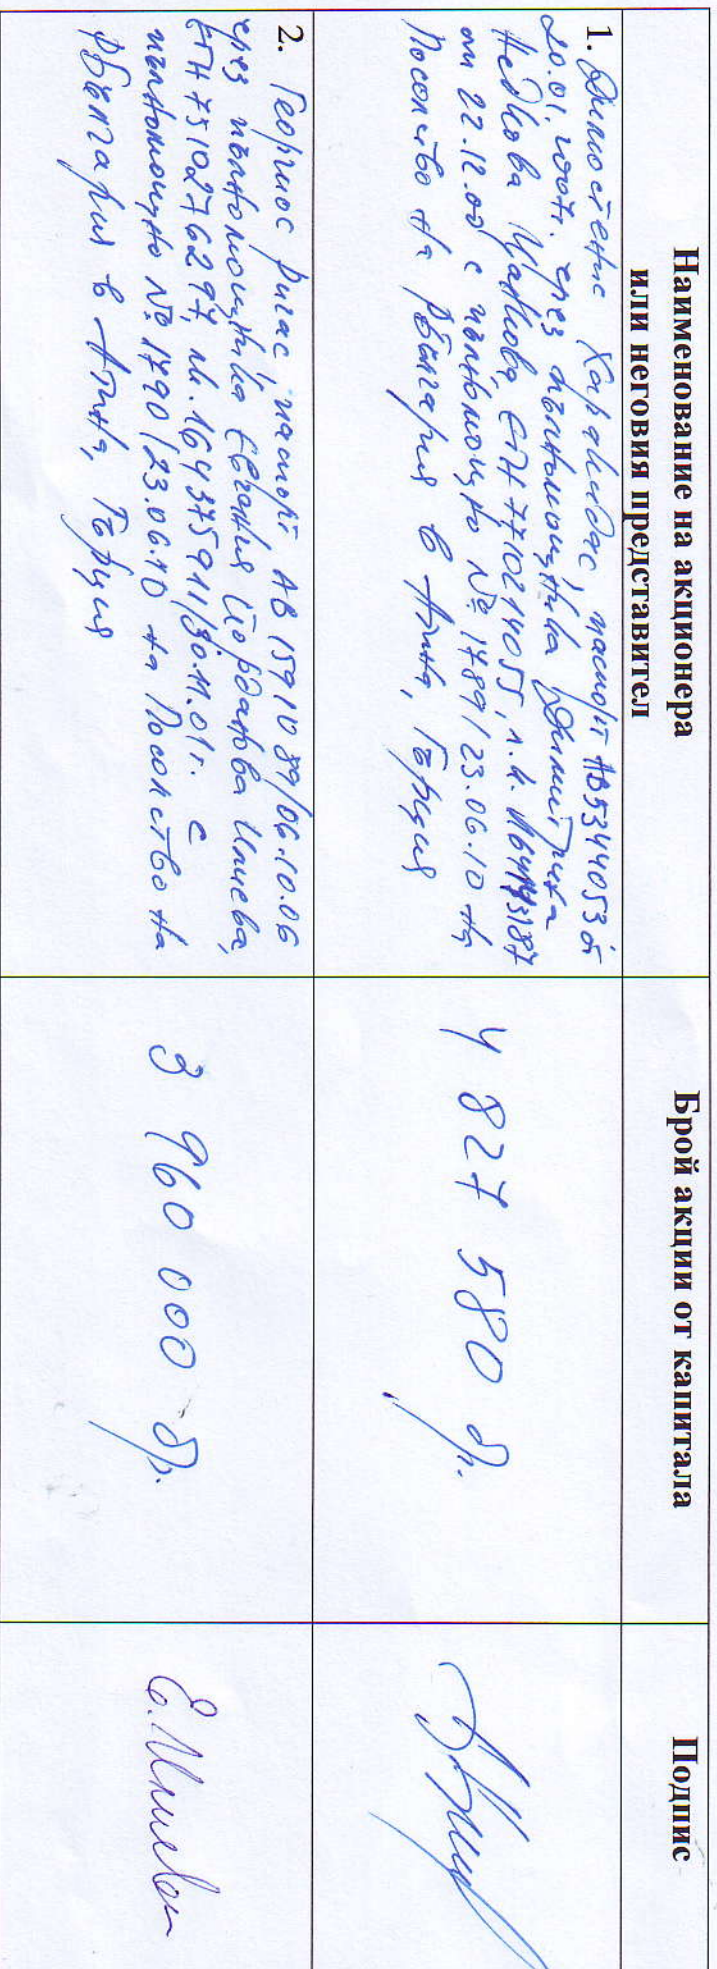 Наименование на акционера
или неговия представител
Брой акции от капитала
Подпис
1. Димостенис Харамидас, паспорт АВ5344053 от
20.01.2007г. чрез пълномощника Димитрина
Недкова Цанкова, ЕГН 7710214055, л.к.
от 22.12.00 с пълномощно № 1789/23.06.10 на
Посолство на РБългария в Атина, Гърция
4 827 580 бр.
2. Георгиос Ригас, паспорт АВ 1591089/06.10.06
чрез пълномощника Евгения Йорданова Илиева,
ЕГН 7510276297, л.к. 164375911/30.11.01г. с
пълномощно № 1790/23.06.10 на Посолство на
РБългария в Атина, Гърция
3 960 000 бр.
Е. Илиева